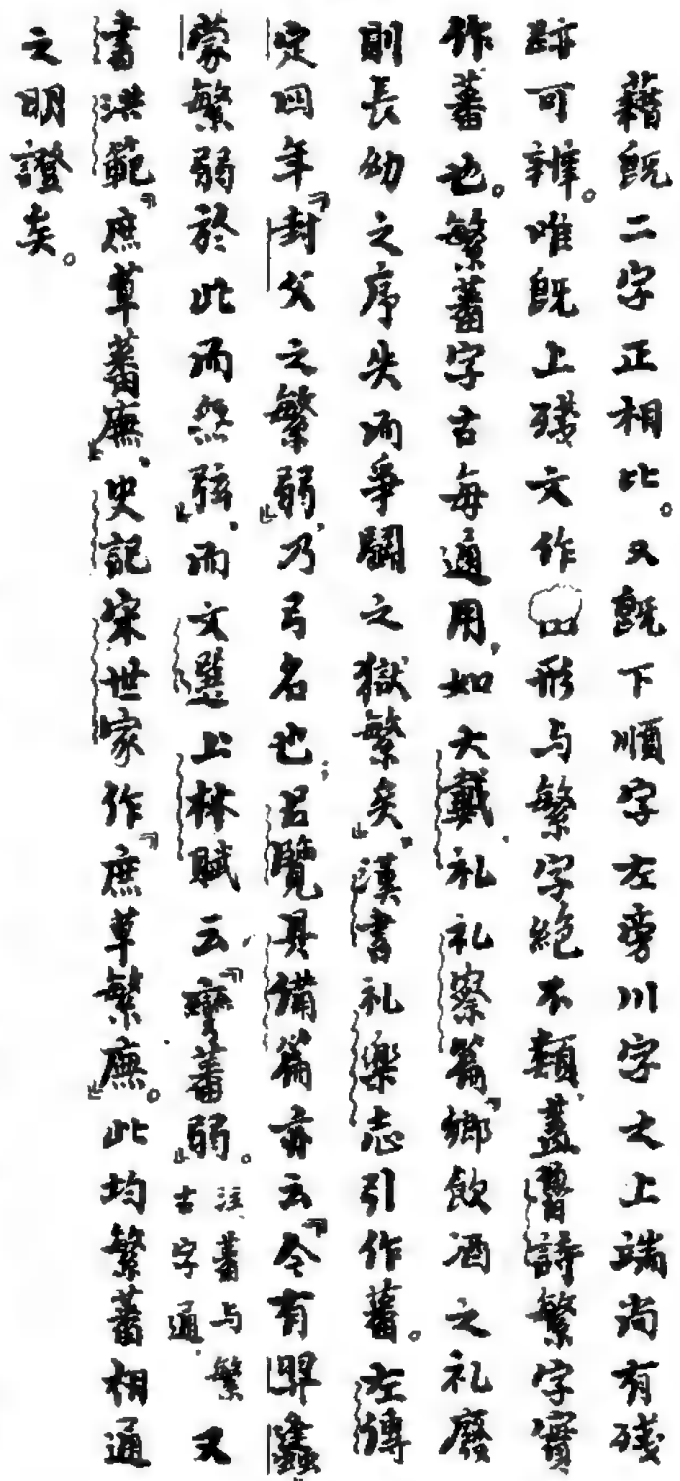 藉既二字正相比。又既下順字左旁川字之上端尚有殘
跡可辨。唯既上殘文作形与繁字絶不類，蓋魯詩繁字實
作蕃也。繁蕃字古每通用，如大戴礼礼察篇「鄉飲酒之礼廢
則長幼之序失而爭鬭之獄繁矣」，漢書礼樂志引作蕃。左傳
定四年「封父之繁弱」，乃弓名也；吕覽具備篇亦云「今有羿蠭
蒙繁弱於此而無弦」，而文選上林賦云「彎蕃弱」。注蕃与繁古字通，又
書洪範「庶草蕃廡」，史記宋世家作「庶草繁廡」。此均繁蕃相通
之明證矣。